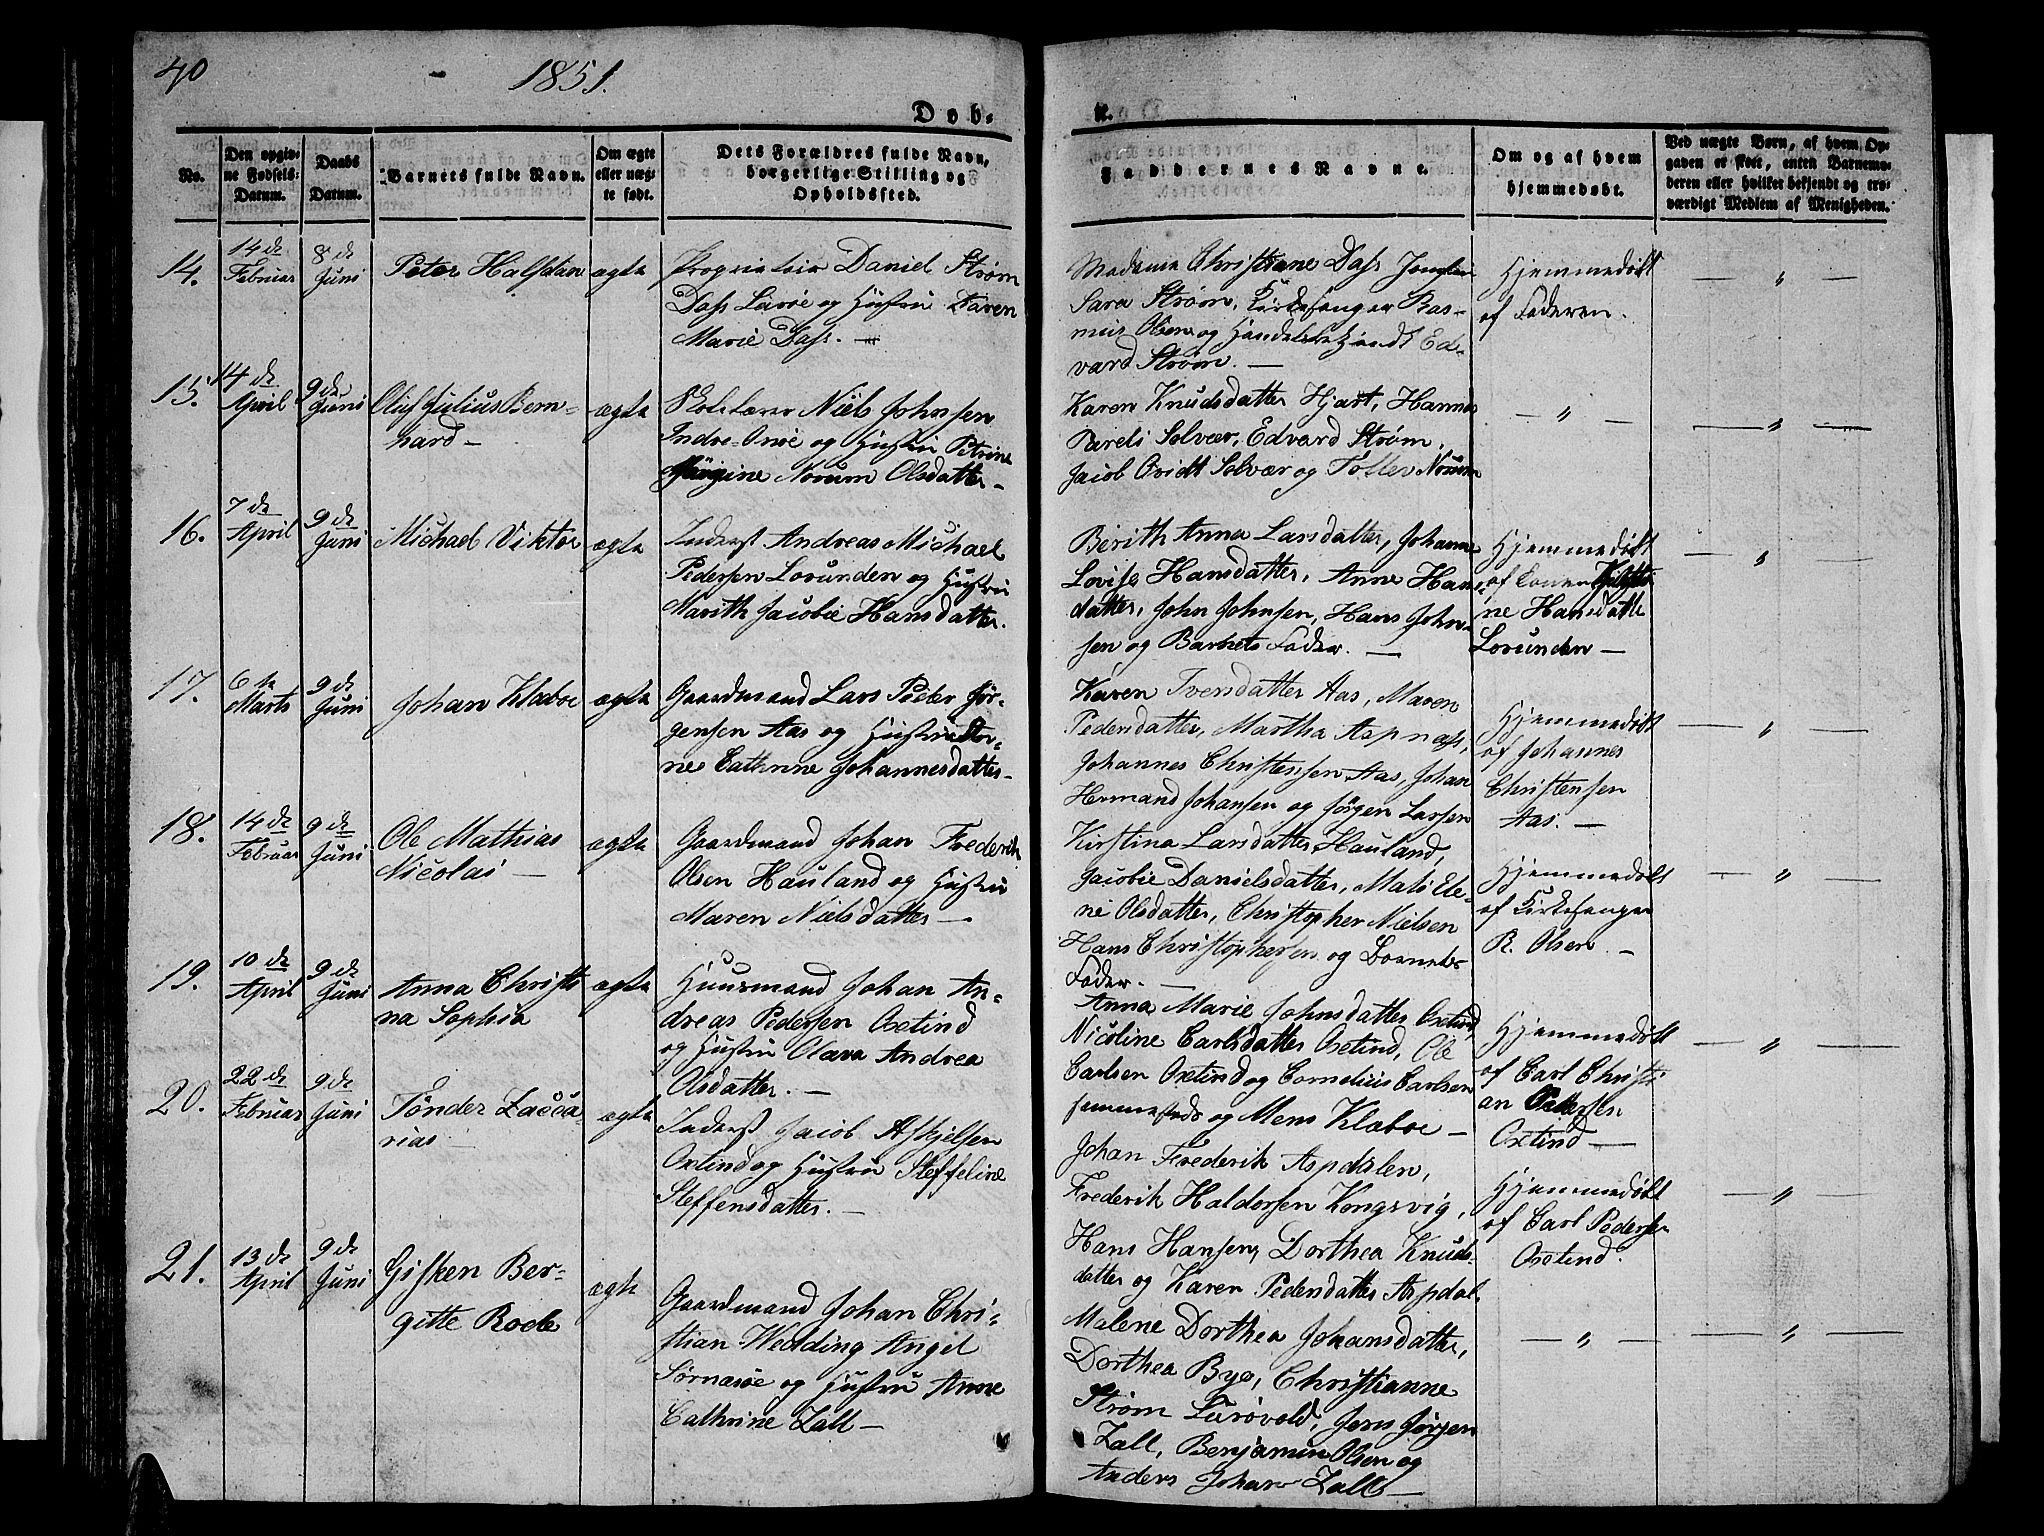 40
1851.
Døb-
te.
No.
Den opgiv-
ne Fødsels-
Datum.
Daabs
Datum.
Barnets fulde Navn.
Om ægte
eller uæg-
te født.
Dets Forældres fulde Navn,
borgerlige Stilling og
Opholdssted.
Faddernes Navne.
Om og af hvem
hjemmedøbt.
Ved uægte Børn, af hvem Op-
gaven er skeet, enten Barnemo-
deren eller hvilket bekjendt og tro-
værdigt Medlem af Menigheden.
14.
14de
Februar
8de
Juni
Peter Halfdan
ægte
Proprietair Daniel Strøm
Dass Lurøe og Hustru Karen
Marie Dass. —
Madame Christiane Dass Jomfru
Sara Strøm, Kirkesanger Ras-
mus Olsen og Handelsbetjendt Ed-
vard Strøm. —
Hjemmedøbt
af Faderen.
— " —
15.
14de
April
9de
Juni
Oluf Julius Bern-
hard —
ægte
Skolelærer Niels Johnsen
Indre-Onøe og Hustru Petrine
Jørgine Norum Olsdatter —
Karen Knudsdatter Hjart, Hanna
Pareli Solvær, Edvard Strøm,
Jacob Qvidt Solvær og Toller Norum
— " —
— " —
16.
7de
April
9de
Juni
Michael Viktor
ægte
Inderst Andreas Michael
Pedersen Lovunden og Hustru
Marith Jacobie Hansdatter.
Berith Anna Larsdatter, Johanne
Lovise Hansdatter, Anne Hans-
datter, John Johnsen, Hans John-
sen og Barnets Fader. —
Hjemmedøbt
af Konen
ne Hansdatter
Lovunden —
— " —
17.
6te
Marts
9de
Juni
Johan Klæboe
ægte
Gaardmand Lars Peder Jør-
gensen Aas og Hustru
Cathrine Johannesdatter —
Karen Ivensdatter Aas, Maren
Pedersdatter, Martha Aspnæss,
Johannes Christensen Aas, Johan
Hermand Johansen og Jørgen Larsen
Hjemmedøbt
af Johannes
Christensen
Aas. —
— " —
18.
14de
Februar
9de
Juni
Ole Mathias
Nicolai —
ægte
Gaardmand Johan Frederik
Olsen Hauland og Hustru
Maren Nielsdatter —
Kirstina Larsdatter Hauland,
Jacobie Danielsdatter, Mali Ele-
ne Olsdatter, Christopher Nielsen
Hans Christophersen og Barnets
Fader. —
Hjemmedøbt
af Kirkesanger
R. Olsen. —
— " —
19.
10de
April
9de
Juni
Anna Christi-
na Sophia
ægte
Huusmand Johan An-
dreas Pedersen Oxtind
og Hustru Olava Andrea
Olsdatter. —
Anna Marie Johnsdatter Oxtind,
Nicoline Carlsdatter Oxtind, Ole
Carlsen Oxtind og Cornelius Carlsen
og Mens Klæboe —
Hjemmedøbt
af Carl Christi
an Pedersen
Oxtind —
— " —
20.
22de
Februar
9de
Juni
Tønder Zacca-
rias
ægte
Inderst Jacob Askjelsen
Oxtind og Hustru Steffeline
Steffensdatter. —
Johan Frederik Aspdalen,
Frederik Haldorsen Kongsvig,
Hans Hansen, Dorthea Knuds-
datter og Karen Pedersdatter Aspdal.
Hjemmedøbt
af Carl Pedersen
Oxtind.
— " —
21.
13de
April
9de
Juni
Gisken Ber-
gitte Rode
ægte
Gaardmand Johan Chri-
stian Wedding Angel
Sørnæsøe og Hustru Anne
Cathrine Zall —
Malene Dorthea Johansdatter,
Dorthea Bye, Christianne
Strøm Lurøvold, Jens Jørgen
Zall, Benjamin Olsen og
Anders Johan Zall —
— " —
— " —